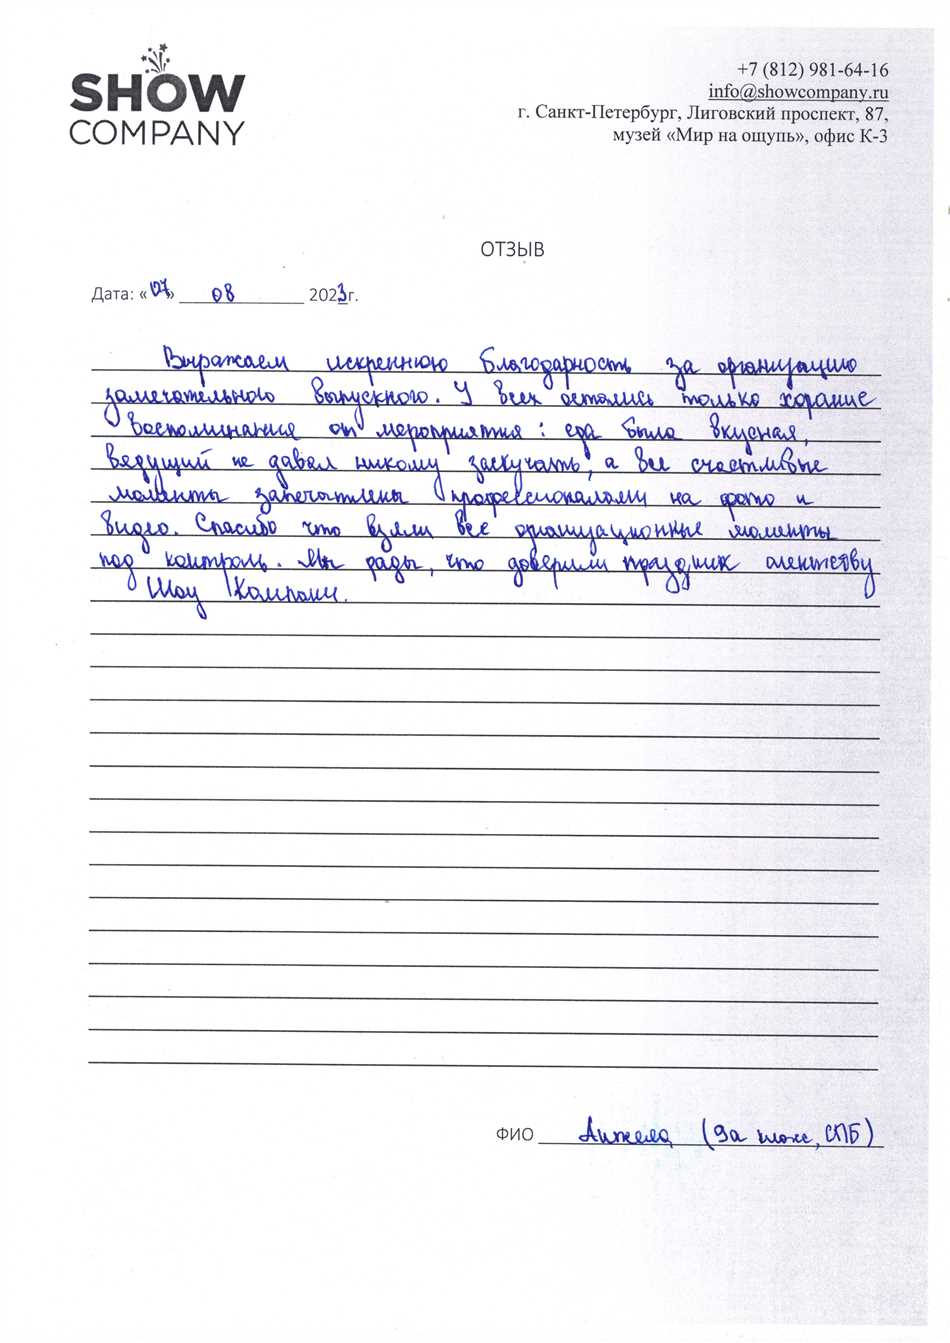 SHOW
COMPANY
+7 (812) 981-64-16
info@showcompany.ru
г. Санкт-Петербург, Лиговский проспект, 87,
музей «Мир на ощупь», офис К-3
ОТЗЫВ
Дата: «07» 08 2023г.
Выражаем искреннюю благодарность за организацию
замечательного выпускного. У всех остались только хорошие
воспоминания от мероприятия: еда была вкусная,
ведущий не давал никому заскучать, а все счастливые
моменты запечатлены профессионалами на фото и
видео. Спасибо что взяли все организационные моменты
под контроль. Мы рады, что доверили праздник агентству
Шоу Компани.
ФИО Анжела (9а класс, СПБ)